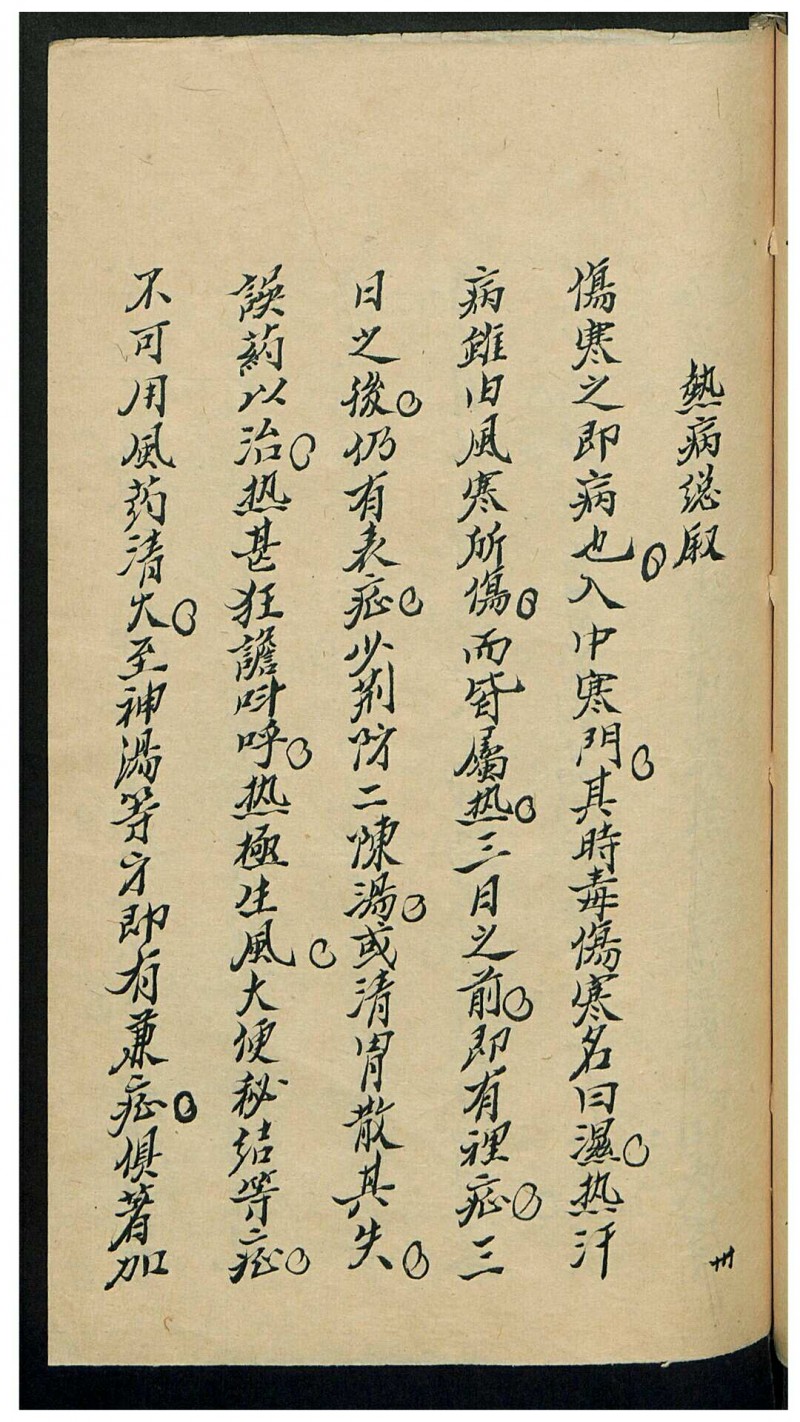 熱病総叙
傷寒之即病也入中寒門其時毒傷寒名曰濕热汗
病雖由風寒所傷而皆屬热三日之前即有裡症三
日之後仍有表症少荆防二陳湯或清胃散其失
誤药以治热甚狂譫呌呼热極生風大便秘结等症
不可用風药清火至神湯等方即有兼症俱着加
卅